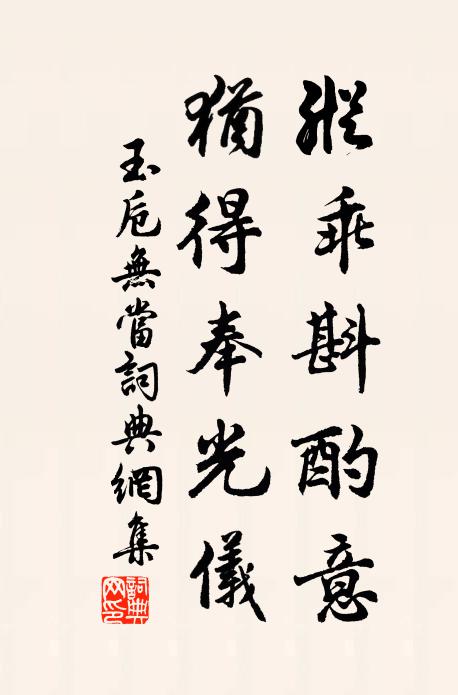 縱乖斟酌意
猶得奉光儀
玉卮無當詞典網集
詞典網印